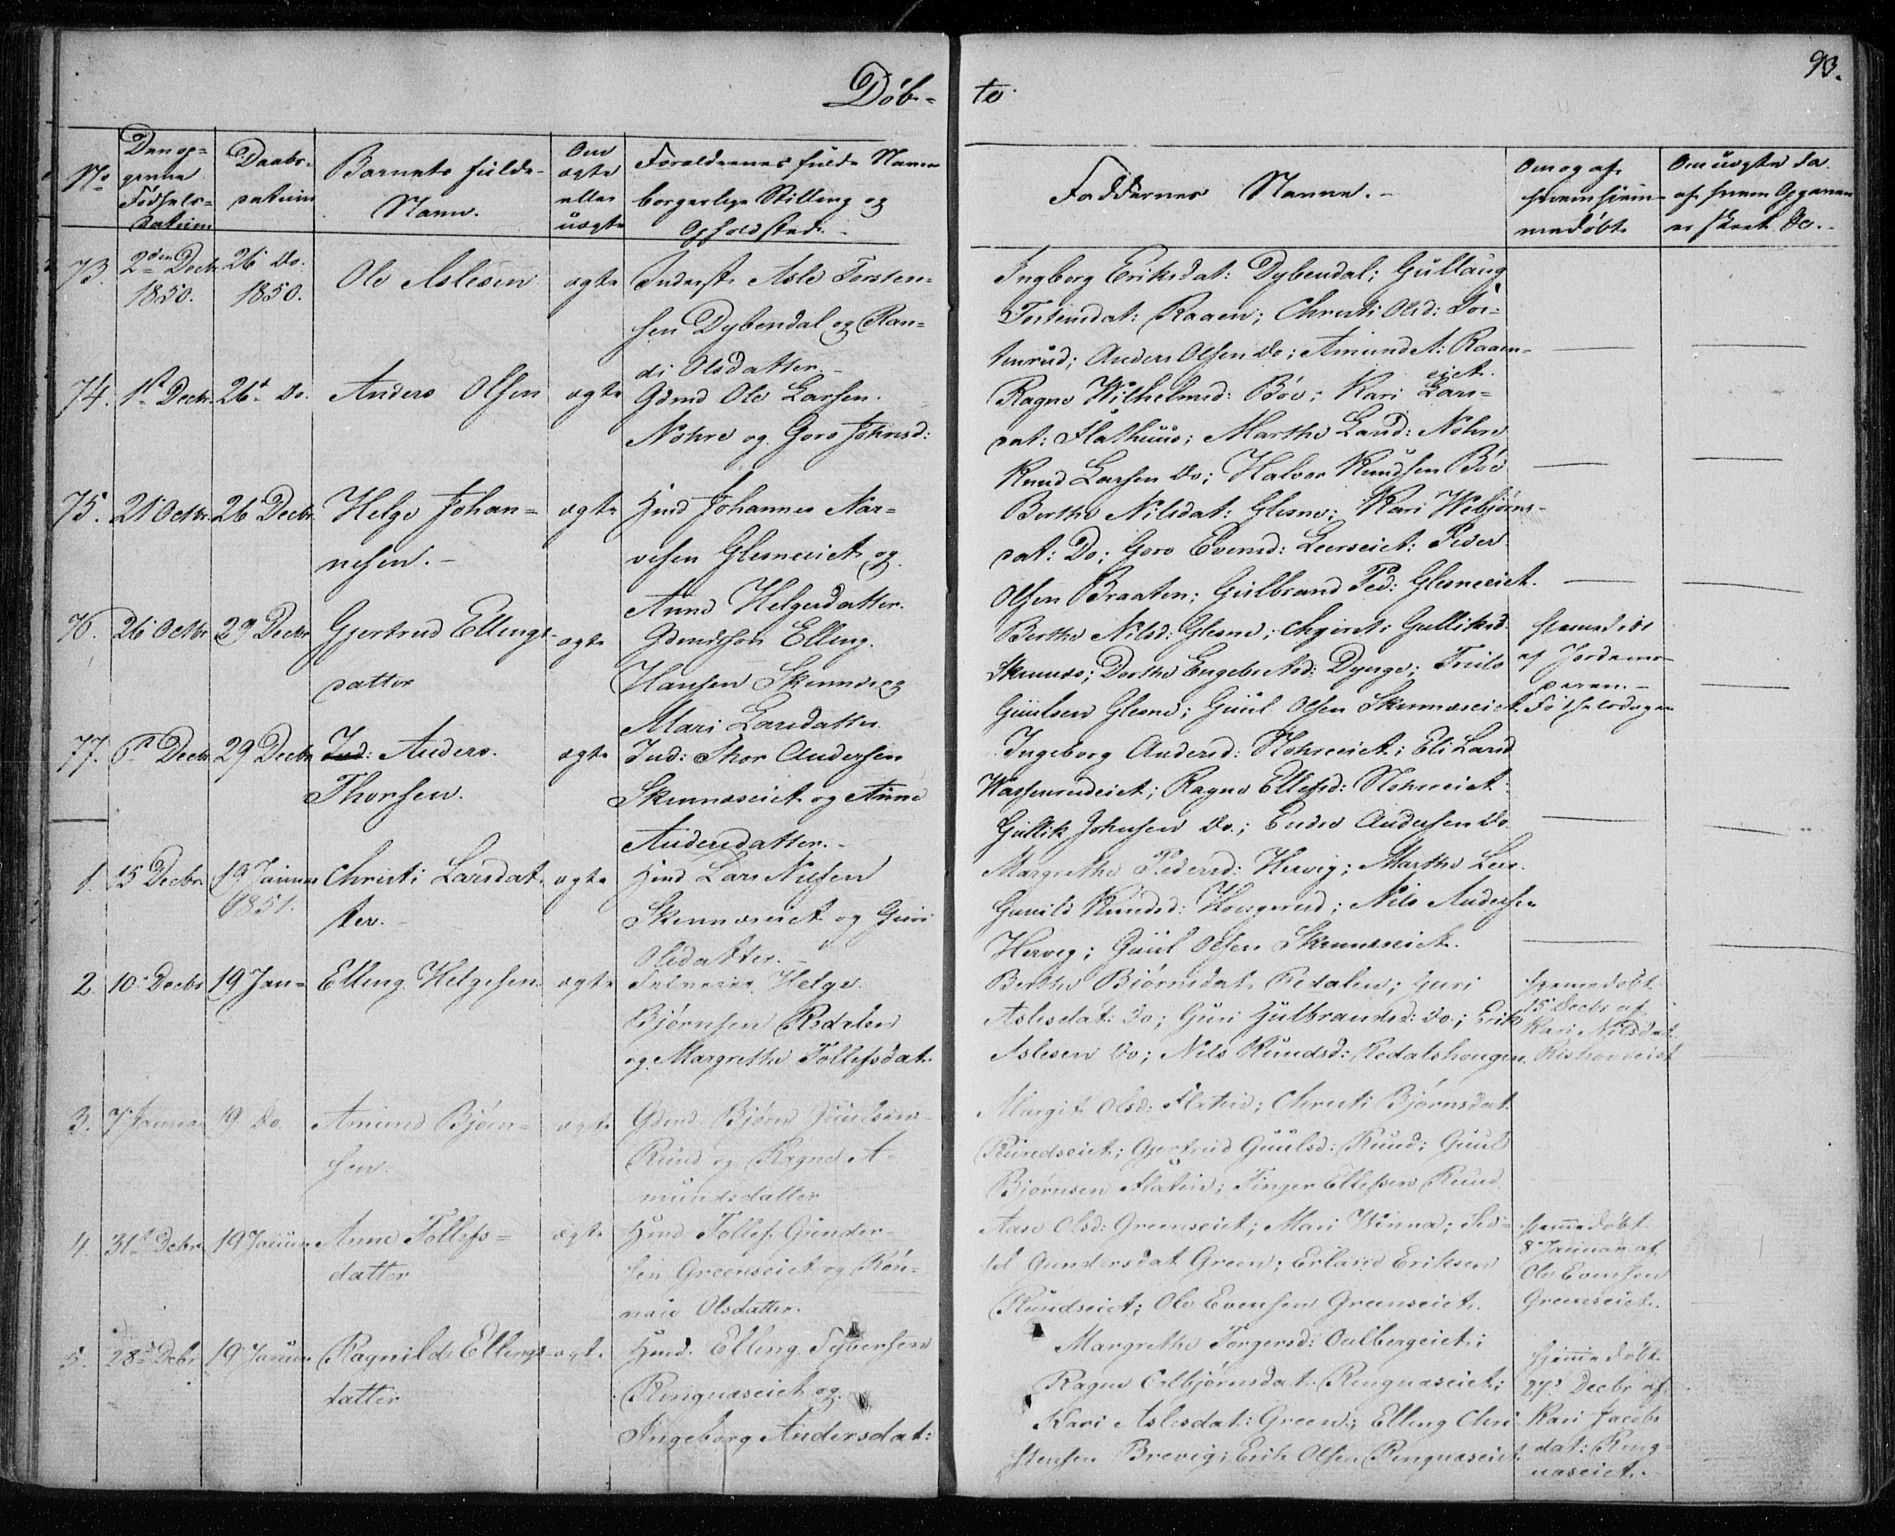 93.
Døb- te
No
Den op-
givne
Fødsels-
datum
Daabs-
datum
Barnets fulde
Navn.
Om
ægte
eller
uægte
Forældrenes fulde Navne
borgerlige Stilling og
Opholdsted. -
Faddernes Navne. -
Om og af
hvem hjem-
medøbt
73. 2den Decbr. 1850. 26 Do. 1850. Ole Aslesen ægte
Inderst Asle Torsten-
sen Dybendal og Ran-
di Olsdatter. -
Ingborg Eriksdat: Dybendal; Gullaug
Tostensdat: Raaen; Christi Olsd:
Anders Olsen Do; Amund A: Raaen-
eiet.
74. 1st Decbr. 26de Do. Anders Olsen ægte
Gdmd Ole Larsen
Nohre og Goro Johnsd:
Ragne Wilhelmsd: Bøe; Kari Lars-
dat: Flathuus; Marthe Larsd: Nohre
Knud Larsen Do; Halvor Knudsen Bøe
75. 21 Octbr. 26 Decbr. Helge Johan-
nesen. - ægte
Hmd Johannes Nar-
vesen Glesneeiet og
Anne Helgesdatter.
Berthe Nilsdat: Glesne; Kari Webjørns-
dat: Do; Goro Evensd: Peder
Olsen Braaten; Gulbrand Ped: Glesneeiet.
76. 26 Octbr 29 Decbr Gjertrud Ellings-
datter ægte
Gdmdsøn Elling
Hansen Skinnes og
Mari Larsdatter
Berthe Nilsd: Glesne; Gulliksd
Dorthe Engebretsd: Dynge; Truls
Guulsen Glesne; Guul Olsen Skinneseiet
Hjemedøbt
af Jordemo-
deren. -
Fødselsdagen
77. 6te Decbr 29 Decbr Anders
Thorsen. ægte
Ind: Thor Andersen
Skinneseiet og Anne
Andersdatter. -
Ingeborg Andersd: Nohreeiet; Eli Larsd
Ragne Ellefsd: Nohreeiet
Gullik Johnsen Do.; Endre Andersen Do
1. 15 Decbr 19 Januar 1851. Christi Larsdat-
ter. - ægte
Hmd Lars Nilsen
Skinneseiet og Guri
Olsdatter. -
Margrethe Pedersd: Hervig; Marthe
Gunild Knudsd: Nils Andersen
Hervig; Guul Olsen Skinneseiet.
2. 10 Decbr 19 Jan- Elling Helgesen ægte
Helge
Bjørnsen Redalen
og Margrethe Tollefsdat.
Berthe Bjørnsdat. Redalen; Guri
Aslesdat: Do; Guri Gulbrandsd: Do; Erik
Aslesen Do; Nils Knudsd: Redalshougen
Hjemedøbt
15 Decbr af
Kari Nilsdat.
3. 7 Januar 19 Do. Amund Bjørn-
sen. ægte
Gdmd. Bjørn Guulsen
Ruud og Ragne A-
mundsdatter
Margit Olsd: Flatin; Christi Bjørnsdat.
Ruudseiet; Gjertrud Guulsd: Ruud; Guul
Bjørnsen Flatin; Tinger Ellefsen Ruud
4. 31te Debr 19 Januar Anne Tollefs-
datter ægte
Hmd Tollef Gunder-
sen Greenseiet og Røn-
nau Olsdatter.
Aase Olsd: Greenseiet; Mari Winna; Sid-
sel Gundersdat Green; Erland Eriksen
Ruudseiet; Ole Evensen Greenseiet.
Hjemedøbt
8 Januar af
Ole Evensen
Greenseiet.
5. 28de Debr 19 Januar Ragnild Ellings-
datter ægte
Hmd. Elling Syversen
Ringnæseiet og
Ingeborg Andersdat:
Margrethe Torgersd: Oulbergeiet;
Ragne Colbjørnsdat. Ringnæseiet;
Kari Aslesdat: Green; Elling Chri-
stensen Brevig; Erik Olsen Ringnæseiet
Hjemedøbt
27de Decbr af
Kari Jacobs-
dat: Ring-
næseiet. -